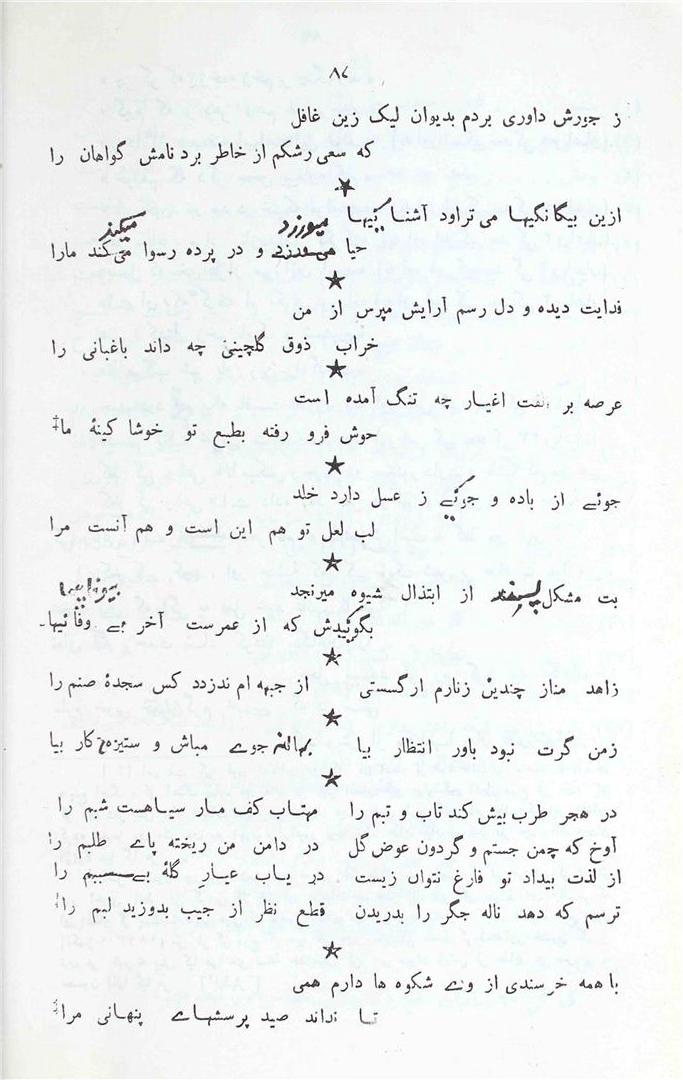 ۸۷
ز جورش داوری بردم بدیوان لیک زین غافل
که سعی رشکم از خاطر برد نامش گواهان را
ازین بیگانگیها می تراود آشنائیها
میورزد میکند
حیا می‌ورزی و در پرده رسوا می‌کند مارا
فدایت دیده و دل رسم آرایش مپرس از من
خراب ذوق گلچینی چه داند باغبانی را
عرصه بر الفت اغیار چه تنگ آمده است
خوش فرو رفته بطبع تو خوشا کینهٔ ما
جوئے از باده و جوئے ز عسل دارد خلد
لب لعل تو هم این است و هم آنست مرا
بت مشکل پسند از ابتذال شیوه میرنجد
بیوفائیها
بگوئیدش که از عمرست آخر بے وفائیها۔
زاهد مناز چندین زنارم ارگسستی از جبهه ام ندزدد کس سجدهٔ صنم را
زمن گرت نبود باور انتظار بیا بهانه جوے مباش و ستیزه کار بیا
در هجر طرب بیش کند تاب و تبم را مهتاب کف مار سیاهست شبم را
آوخ که چمن جستم و گردون عوض گل در دامن من ریخته پاے طلبم را
از لذت بیداد تو فارغ نتواں زیست در یاب عیار گلهٔ بے سببم را
ترسم که دهد ناله جگر را بدریدن قطع نظر از جیب بدوزید لبم را
با همه خرسندی از وے شکوه ها دارم همی
تا نداند صید پرسشهاے پنهانی مرا